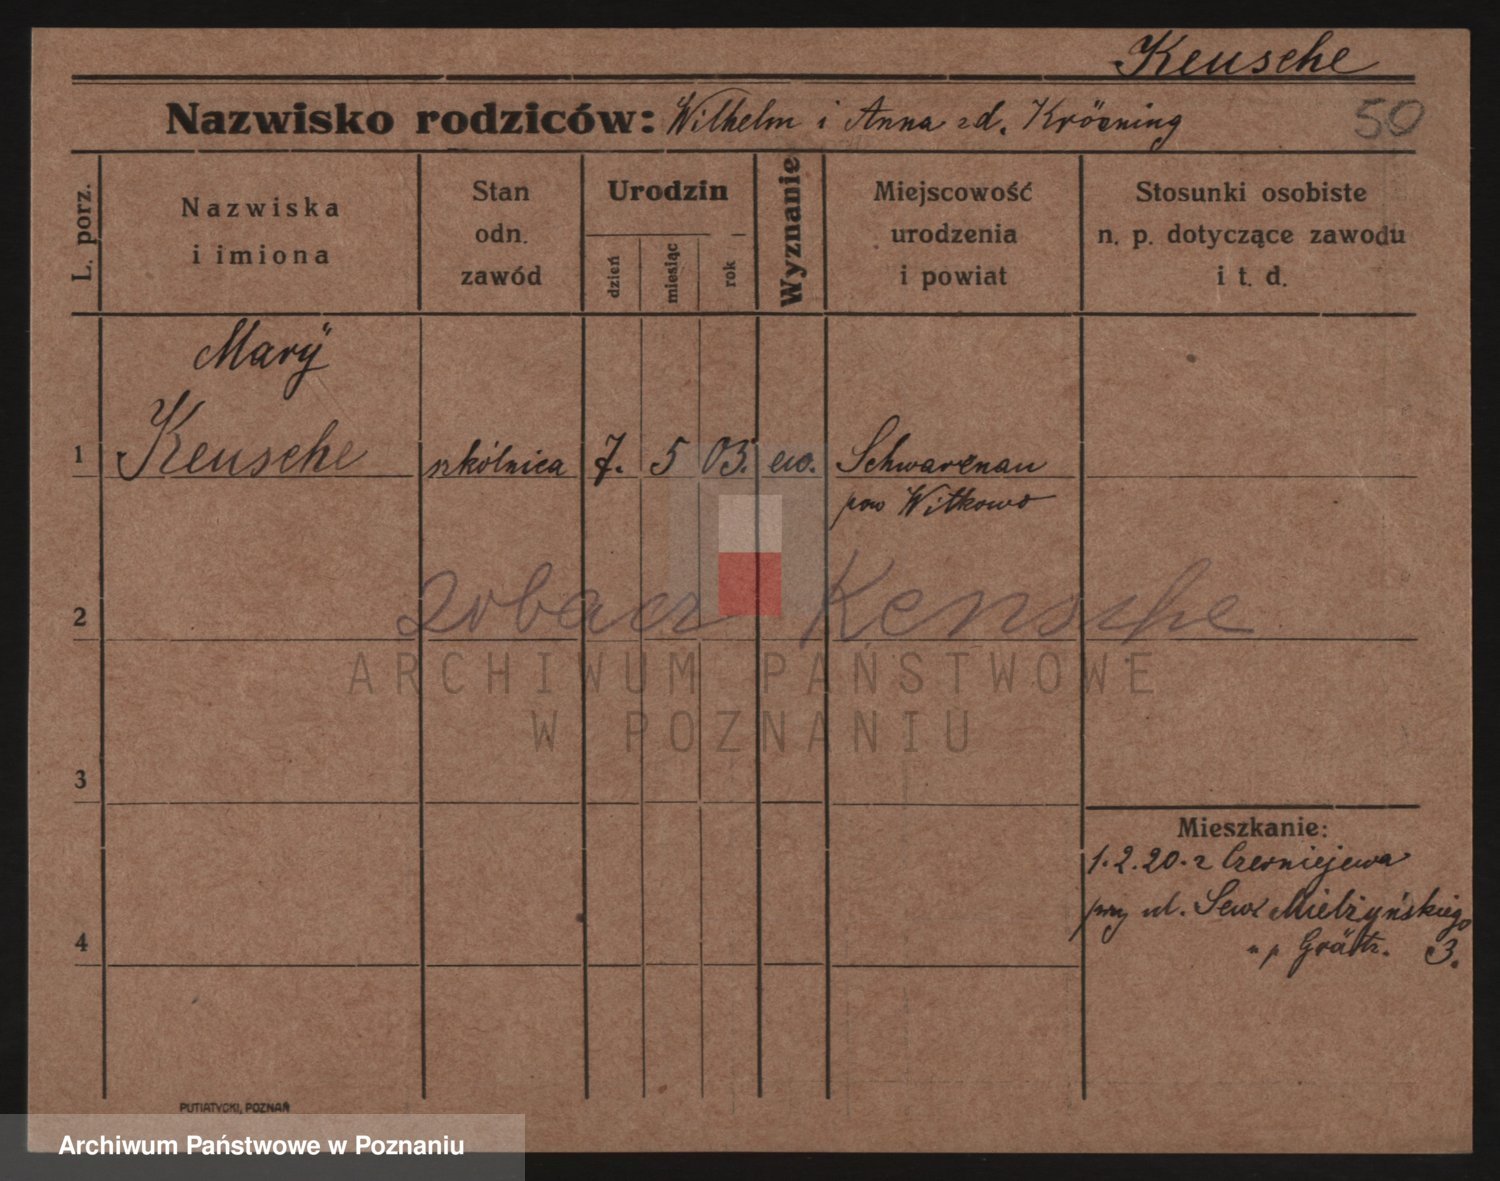 Keusche
Nazwisko rodziców: Wilhelm i Anna zd. Kröening
50
L. porz.
Nazwiska
i imiona
Stan
odn.
zawód
Urodzin
dzień
miesiąc
rok
Wyznanie
Miejscowość
urodzenia
i powiat
Stosunki osobiste
n. p. dotyczące zawodu
i t. d.
Marÿ
1 Keusche szkólnica 7. 5 03. ew. Schwarenau
pow Witkowo
2 zobacz Kensche
ARCHIWUM PAŃSTWOWE
W POZNANIU
3
Mieszkanie:
1.2.20. z Czerniejewa
przy ul. Sew Mielżyńskiego
4
u p Grätz. 3.
PUTIATYCKI, POZNAŃ
Archiwum Państwowe w Poznaniu